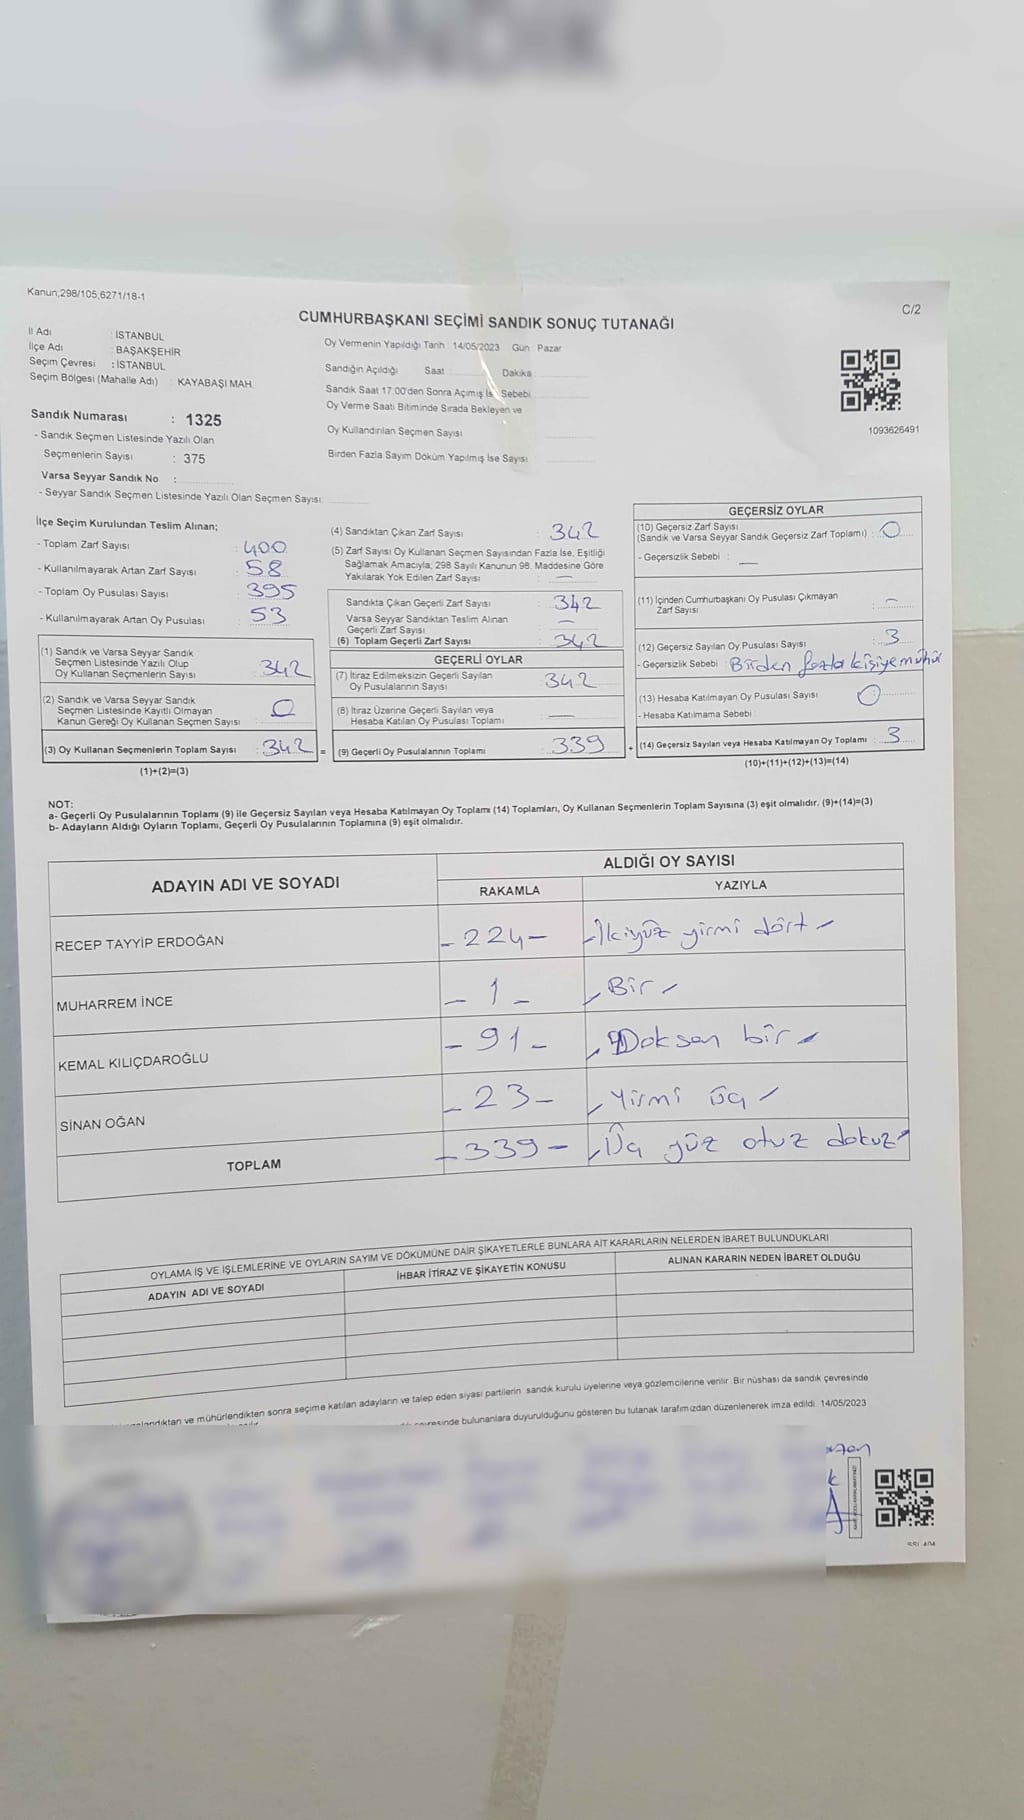 SANDIK
Kanun;298/105;6271/18-1
C/2
CUMHURBAŞKANI SEÇİMİ SANDIK SONUÇ TUTANAĞI
İl Adı : İSTANBUL
İlçe Adı : BAŞAKŞEHİR
Seçim Çevresi : İSTANBUL
Seçim Bölgesi (Mahalle Adı) : KAYABAŞI MAH.
Oy Vermenin Yapıldığı Tarih : 14/05/2023 Gün : Pazar
Sandığın Açıldığı Saat Dakika
Sandık Saat 17.00'den Sonra Açımış İse Sebebi
Oy Verme Saati Bitiminde Sırada Bekleyen ve
Oy Kullandırılan Seçmen Sayısı
Birden Fazla Sayım Döküm Yapılmış İse Sayısı
1093626491
Sandık Numarası : 1325
- Sandık Seçmen Listesinde Yazılı Olan
Seçmenlerin Sayısı : 375
Varsa Seyyar Sandık No :
- Seyyar Sandık Seçmen Listesinde Yazılı Olan Seçmen Sayısı:
İlçe Seçim Kurulundan Teslim Alınan;
- Toplam Zarf Sayısı : 400
- Kullanılmayarak Artan Zarf Sayısı : 58
- Toplam Oy Pusulası Sayısı : 395
- Kullanılmayarak Artan Oy Pusulası : 53
(1) Sandık ve Varsa Seyyar Sandık
Seçmen Listesinde Yazılı Olup
Oy Kullanan Seçmenlerin Sayısı : 342
(2) Sandık ve Varsa Seyyar Sandık
Seçmen Listesinde Kayıtlı Olmayan
Kanun Gereği Oy Kullanan Seçmen Sayısı : 0
(3) Oy Kullanan Seçmenlerin Toplam Sayısı : 342 =
(1)+(2)=(3)
(4) Sandıktan Çıkan Zarf Sayısı : 342
(5) Zarf Sayısı Oy Kullanan Seçmen Sayısından Fazla İse, Eşitliği
Sağlamak Amacıyla; 298 Sayılı Kanunun 98. Maddesine Göre
Yakılarak Yok Edilen Zarf Sayısı : —
Sandıkta Çıkan Geçerli Zarf Sayısı : 342
Varsa Seyyar Sandıktan Teslim Alınan
Geçerli Zarf Sayısı : —
(6) Toplam Geçerli Zarf Sayısı : 342
GEÇERLİ OYLAR
(7) İtiraz Edilmeksizin Geçerli Sayılan
Oy Pusulalarının Sayısı : 342
(8) İtiraz Üzerine Geçerli Sayılan veya
Hesaba Katılan Oy Pusulası Toplamı : —
(9) Geçerli Oy Pusulalarının Toplamı : 339 +
GEÇERSİZ OYLAR
(10) Geçersiz Zarf Sayısı
(Sandık ve Varsa Seyyar Sandık Geçersiz Zarf Toplamı) : 0
- Geçersizlik Sebebi : —
(11) İçinden Cumhurbaşkanı Oy Pusulası Çıkmayan
Zarf Sayısı : —
(12) Geçersiz Sayılan Oy Pusulası Sayısı : 3
- Geçersizlik Sebebi : Birden fazla kişiye mühür
(13) Hesaba Katılmayan Oy Pusulası Sayısı : 0
- Hesaba Katılmama Sebebi
(14) Geçersiz Sayılan veya Hesaba Katılmayan Oy Toplamı : 3
(10)+(11)+(12)+(13)=(14)
NOT:
a- Geçerli Oy Pusulalarının Toplamı (9) ile Geçersiz Sayılan veya Hesaba Katılmayan Oy Toplamı (14) Toplamları, Oy Kullanan Seçmenlerin Toplam Sayısına (3) eşit olmalıdır. (9)+(14)=(3)
b- Adayların Aldığı Oyların Toplamı, Geçerli Oy Pusulalarının Toplamına (9) eşit olmalıdır.
ADAYIN ADI VE SOYADI ALDIĞI OY SAYISI
RAKAMLA YAZIYLA
RECEP TAYYİP ERDOĞAN - 224 - - İkiyüz yirmi dört -
MUHARREM İNCE - 1 - - Bir -
KEMAL KILIÇDAROĞLU - 91 - - Doksan bir -
SİNAN OĞAN - 23 - - Yirmi üç -
TOPLAM - 339 - - Üç yüz otuz dokuz -
OYLAMA İŞ VE İŞLEMLERİNE VE OYLARIN SAYIM VE DÖKÜMÜNE DAİR ŞİKAYETLERLE BUNLARA AİT KARARLARIN NELERDEN İBARET BULUNDUKLARI
ADAYIN ADI VE SOYADI İHBAR İTİRAZ VE ŞİKAYETİN KONUSU ALINAN KARARIN NEDEN İBARET OLDUĞU
ve mühürlendikten sonra seçime katılan adayların ve talep eden siyasi partilerin sandık kurulu üyelerine veya gözlemcilerine verilir. Bir nüshası da sandık çevresinde
bulunanlara duyurulduğunu gösteren bu tutanak tarafımızdan düzenlenerek imza edildi. 14/05/2023